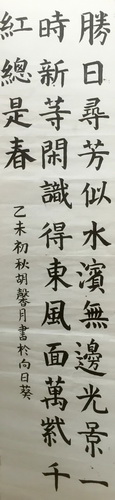 勝日尋芳似水濱無邊光景一
時新等閑識得東風面萬紫千
紅總是春
乙未初秋胡馨月書於向日葵